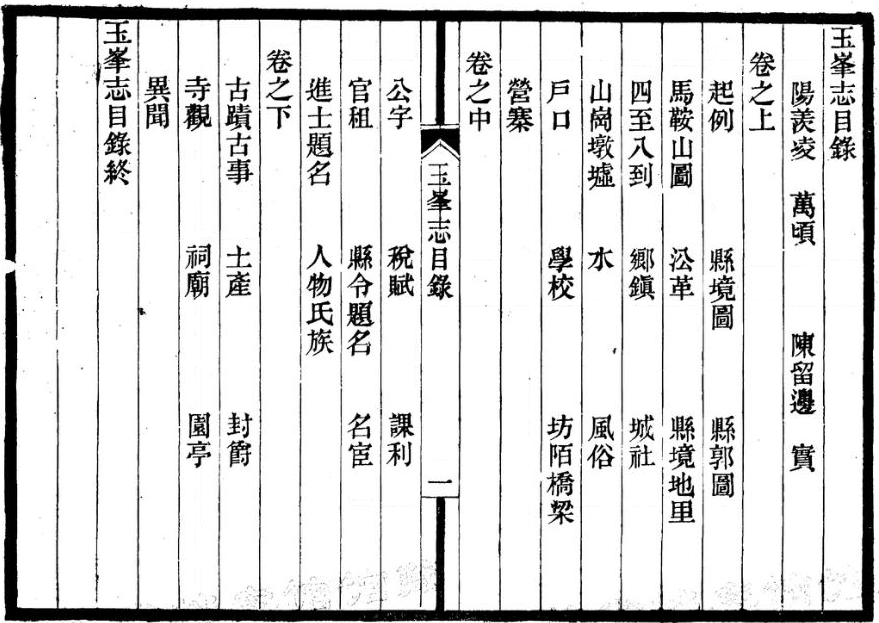 玉峯志目錄
陽羨凌　萬頃　陳留邊　實
卷之上
起例　縣境圖　縣郭圖
馬鞍山圖　㳂革　縣境地里
四至八到　鄉鎭　城社
山崗墩墟　水　風俗
戸口　學校　坊陌橋梁
營寨
卷之中
玉峯志目錄　一
公宇　稅賦　課利
官租　縣令題名　名宦
進士題名　人物氏族
卷之下
古蹟古事　土產　封爵
寺觀　祠廟　園亭
異聞
玉峯志目錄終